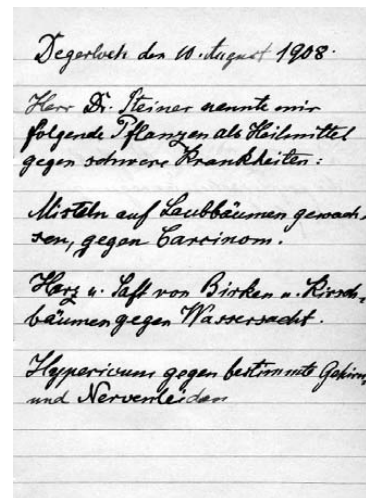 Degerloch den 10. August 1908.
Herr Dr. Steiner nennte mir
folgende Pflanzen als Heilmittel
gegen schwere Krankheiten:
Misteln auf Laubbäumen gewach-
sen, gegen Carcinom.
Harz u. Saft von Birken u. Kirsch-
bäumen gegen Wassersucht.
Hypericum gegen bestimmte Gehirn,
und Nervenleiden